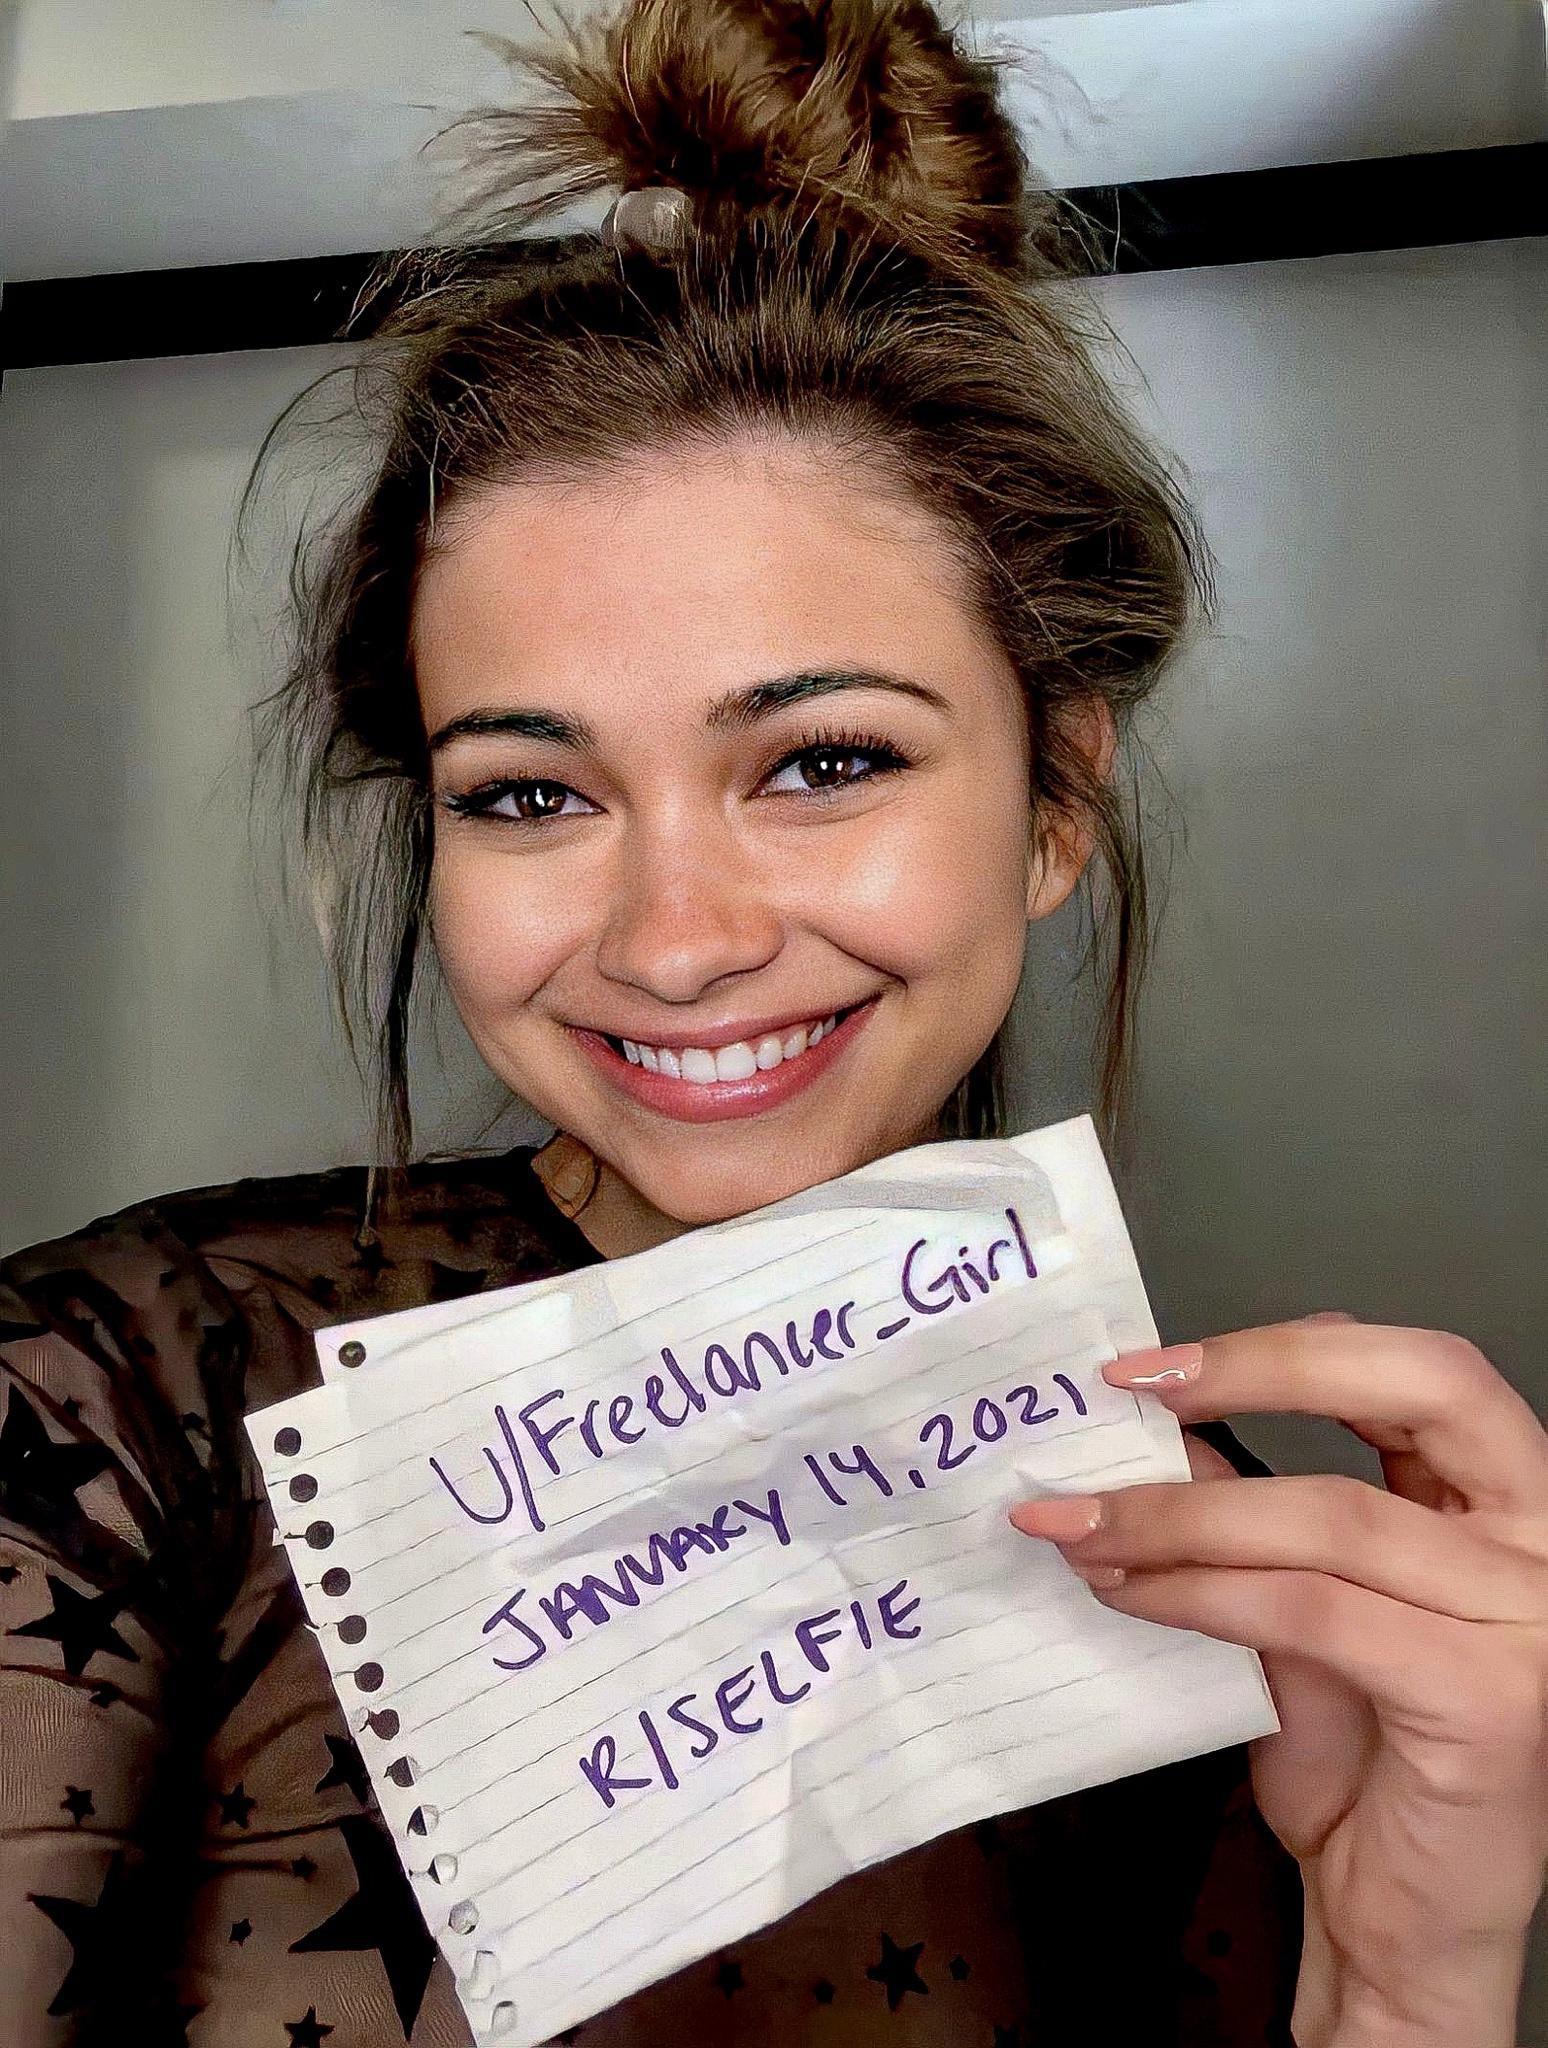 U/Freelancer_Girl
JANUARY 14, 2021
R/SELFIE